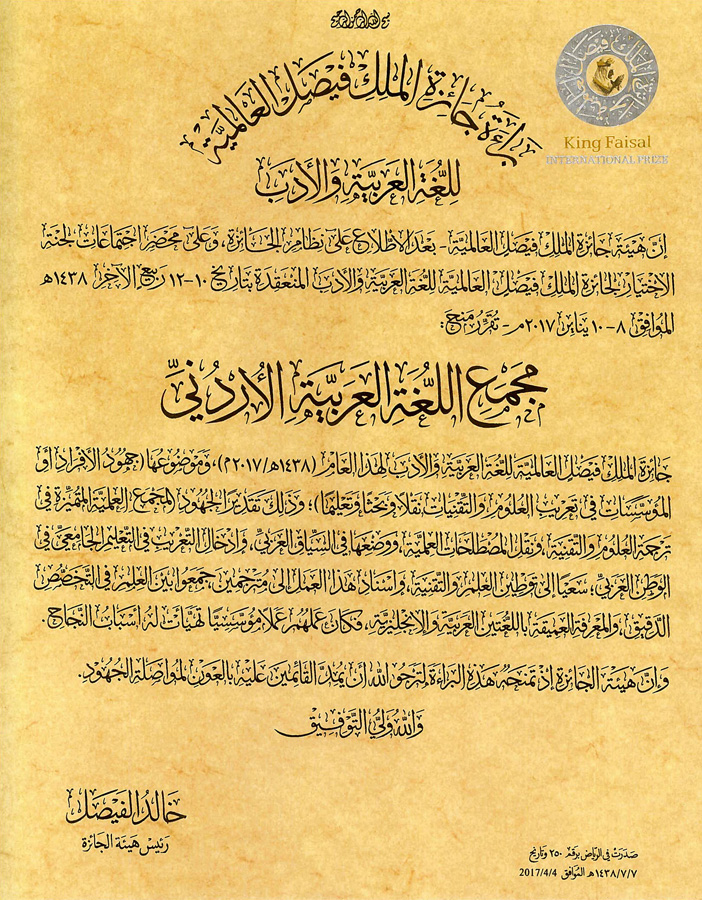 بسم الله الرحمن الرحيم
براءة جائزة الملك فيصل العالمية
King Faisal
INTERNATIONAL PRIZE
للغة العربية والأدب
إن هيئة جائزة الملك فيصل العالمية - بعد الاطلاع على نظام الجائزة، وعلى محضر اجتماعات لجنة
الاختيار لجائزة الملك فيصل العالمية للغة العربية والأدب المنعقدة بتاريخ ١٠-١٢ ربيع الآخر ١٤٣٨هـ
الموافق ٨-١٠ يناير ٢٠١٧م - تقرر منح:
مجمع اللغة العربية الأردني
جائزة الملك فيصل العالمية للغة العربية والأدب لهذا العام (١٤٣٨هـ/٢٠١٧م)، وموضوعها (جهود الأفراد أو
المؤسسات في تعريب العلوم والتقنيات نقلاً وبحثاً وتعليماً)؛ وذلك تقديراً لجهود المجمع العلمية المتميزة في
ترجمة العلوم والتقنية، ونقل المصطلحات العلمية، ووضعها في السياق العربي، وإدخال التعريب في التعليم الجامعي في
الوطن العربي؛ سعياً إلى توطين العلم والتقنية، وإسناد هذا العمل إلى مترجمين جمعوا بين العلم في التخصص
الدقيق، والمعرفة العميقة باللغتين العربية والإنجليزية، فكان عملهم عملاً مؤسسياً تهيأت له أسباب النجاح.
وإن هيئة الجائزة إذ تمنحه هذه البراءة لترجو الله أن يمد القائمين عليه بالعون لمواصلة الجهود.
والله ولي التوفيق
خالد الفيصل
رئيس هيئة الجائزة
صدرت في الرياض برقم ٢٥٠ وتاريخ
١٤٣٨/٧/٧هـ الموافق 2017/4/4